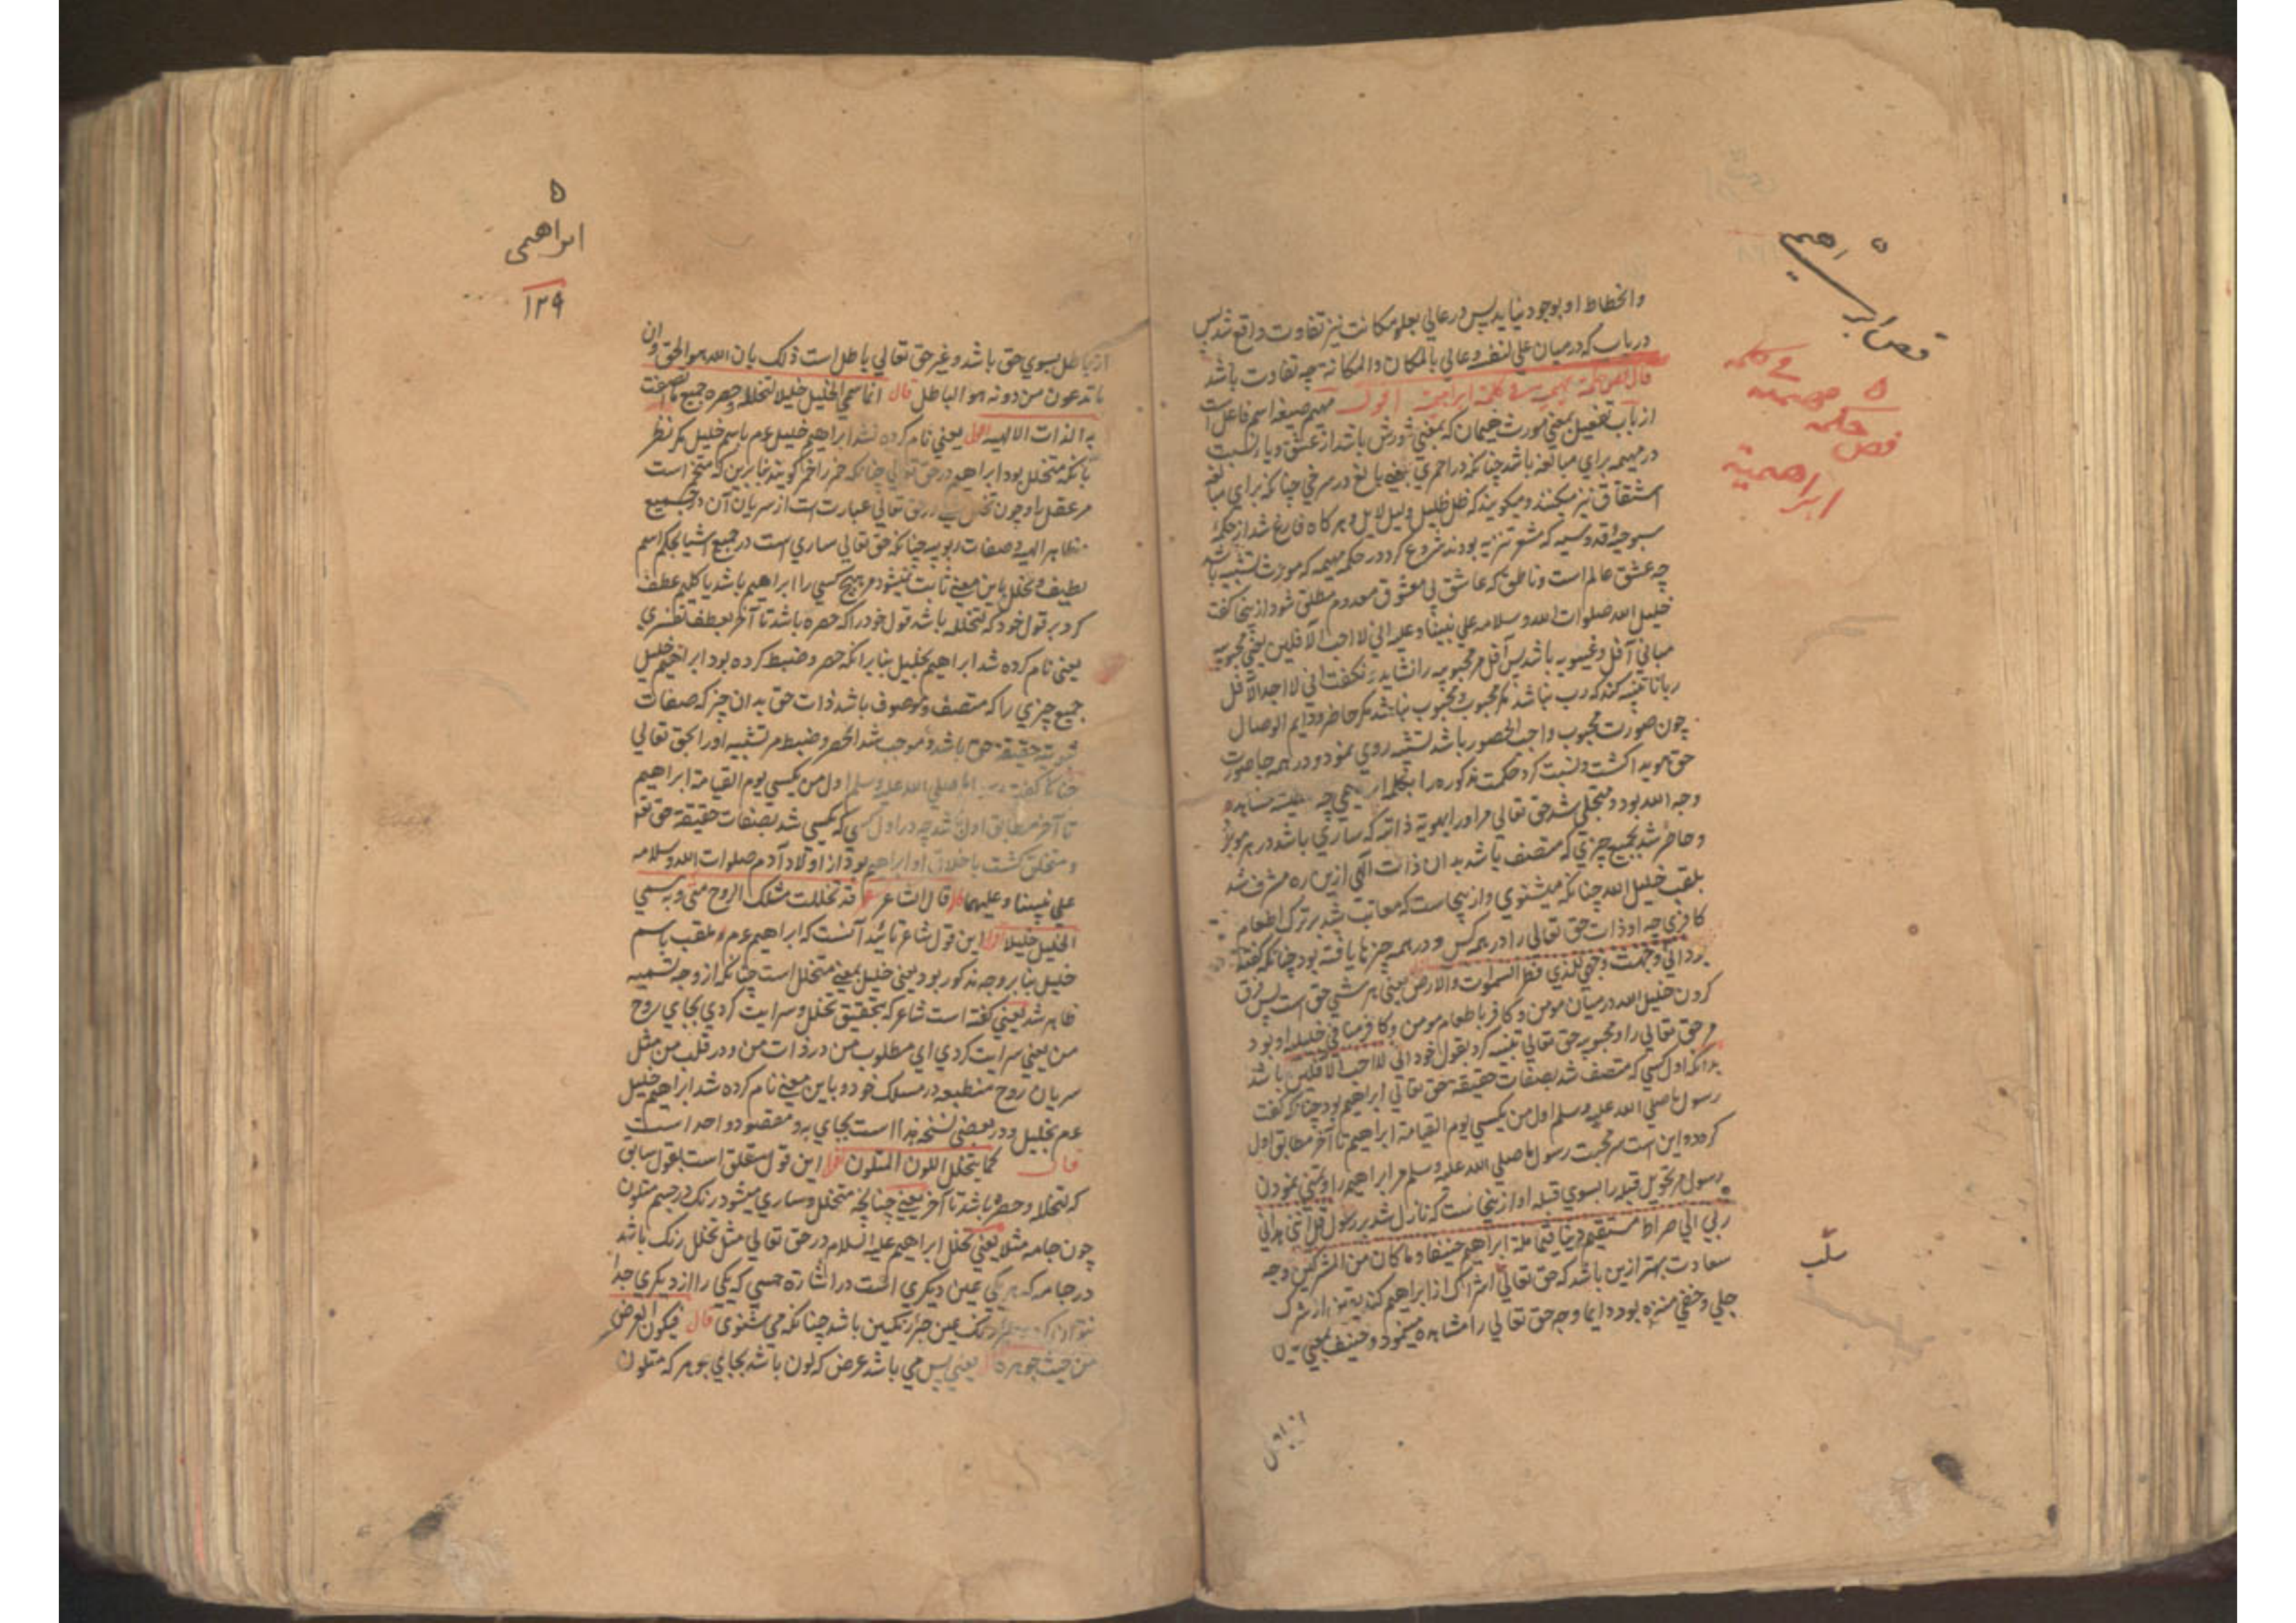 ۵
فص ابراهیم
فی کلمه
۵ مهیمیه
فص حکمه
ابراهیمیة
وانحطاط او بوجود نیاید پس در عالی بعلو مکانت نیز تفاوت واقع شد پس
دریاب که درمیان علی لنفسه وعالی بالمکان والمکانة چه تفاوت باشد
قال فص حکمة مهیمیة فی کلمة ابراهیمیة اقول مهیم صیغه اسم فاعل است
از باب تفعیل بمعنی مورث هیمان که بمعنی شورش باشد از عشق ویاء نسبت
در مهیمیه برای مبالغه باشد چنانکه در احمری یعنی بالغ در سرخی چنانکه برای مبالغه
اشتقاق نیز میکنند ومیگویند که ظل ظلیل ولیل لایل وهرگاه فارغ شد از حکمة
سبوحیه وقدوسیه که مشعر تنزیه بودند شروع کرد در حکمه مهیمیه که مورث تشبیه باشد
چه عشق عالم است وناطق که عاشق بی معشوق معدوم مطلق شود ازینجا گفت
خلیل الله صلوات الله وسلامه علی نبینا وعلیه انی لا احب الآفلین یعنی محبوبیه
مبانی آفل وغیبوبه باشد پس آفل مر محبوبیه را نشاید ونگفت انی لا احد الآفل
ربا تا تنبیه کند که رب نباشد مگر محبوب ومحبوب نباشد مگر حاضر ودایم الوصال
چون صورت محبوب واجب الحضور باشد تشبیه روی نمود ودر همه جا صورت
حق هویدا گشت ونسبت کرد حکمت مذکوره را بکلمه ابراهیمی چه مشاهده
وجه الله بود ومتجلی شد حق تعالی مر او را بهویة ذاته که ساری باشد در هر موجود
وحاضر شد بجمیع چیزی که متصف باشد بدان ذات الهی ازین راه مشرف شد
بلقب خلیل الله چنانکه میشنوی وازینجاست که معاتب شد بر ترک اطعام
کافری چه او ذات حق تعالی را در همه کس ودر همه چیزها یافته بود چنانکه گفته
بود انی وجهت وجهی للذی فطر السموات والارض یعنی هر شیی حق است پس فرق
کردن خلیل الله درمیان مومن وکافر باطعام مومن وکافر منافی خلیله او بود
مر حق تعالی را ومحبوبیه حق تعالی تنبیه کرد بقول خود انی لا احب الآفلین باشد
بدانکه اول کسی که متصف شد بصفات حقیقة حق تعالی ابراهیم بود چنانکه گفت
رسول ما صلی الله علیه وسلم اول من یکسی یوم القیامة ابراهیم تا آخر مطابق اول
گردد واین است سر محبت رسول ما صلی الله علیه وسلم مر ابراهیم را وتمنی نمودن
رسول مر تحویل قبله را بسوی قبله او ازینجاست که نازل شد بر رسول قل اننی هدانی
ربی الی صراط مستقیم دینا قیما ملة ابراهیم حنیفا وما کان من المشرکین وچه
سعادت بهتر ازین باشد که حق تعالی اشراک از ابراهیم کند از شرک
جلی وخفی منزه بود دایما وجه حق تعالی را مشاهده مینمود وحنیف بمعنی
سلب
از باطل
۵
ابراهیمی
۱۲۹
از باطل بسوی حق باشد وغیر حق تعالی باطل است ذلک بان الله هو الحق وان
ما تدعون من دونه هو الباطل قال انما سمی الخلیل خلیلا لتخلله وحصره جمیع ما اتصفت
به الذات الالهیه اقول یعنی نام کرده نشد ابراهیم خلیل عم باسم خلیل مگر نظر
بآنکه متخلل بود ابراهیم در حق تعالی چنانکه خمر را خمر گویند بنابرین که متخمر است
مر عقل را وچون تخلل در حق تعالی عبارت است از سریان آن در جمیع
مظاهر الهیه وصفات ربوبیه چنانکه حق تعالی ساری است در جمیع اشیا بحکم اسم
لطیف وتخلل باین معنی ثابت نیشود مر هیچ کسی را ابراهیم باشد یا کلیم عطف
کرد بر قول خود که لتخلله باشد قول خود را که حصره باشد تا آخر بعطف تفسیری
یعنی نام کرده شد ابراهیم بخلیل بنابر آنکه حصر وضبط کرده بود ابراهیم خلیل
جمیع چیزی را که متصف وموصوف باشد ذات حق بدان چیز که صفات
ثبوتیه حقیقة حق باشد وموجب شد الحصر وضبط مر تشبیه او را بحق تعالی
چنانکه گفت رسول ما صلی الله علیه وسلم اول من یکسی یوم القیامة ابراهیم
تا آخر مطابق اول باشد چه در اول کسی که مکسی شد بصفات حقیقة حق تعم
ومتخلق گشت باخلاق او ابراهیم بود از اولاد آدم صلوات الله وسلامه
علی نبینا وعلیهما قال الشاعر قد تخللت مسلک الروح منی وبه سمی
الخلیل خلیلا اقول این قول شاعر تائید آنست که ابراهیم عم ملقب باسم
خلیل بنابر وجه مذکور بود یعنی خلیل بمعنی متخلل است چنانکه از وجه تسمیه
ظاهر شد یعنی گفته است شاعر که بتحقیق تخلل وسرایت کردی بجای روح
من یعنی سرایت کردی ای مطلوب من در ذات من ودر قلب من مثل
سریان روح منطبعه در مسلک خود وباین معنی نام کرده شد ابراهیم خلیل
عم بخلیل ودر بعضی نسخه بذا است بجای به ومقصود واحد است
قال کما یتخلل اللون المتلون اقول این قول متعلق است بقول سابق
که لتخلله وحصره باشد تا آخر یعنی چنانچه متخلل وساری میشود رنگ در جسم متلون
چون جامه مثلا یعنی تخلل ابراهیم علیه السلام در حق تعالی مثل تخلل رنگ باشد
در جامه که هر یکی عین دیگری است در اشاره حسی که یکی را از دیگری جدا
نتوان کرد عین جزء رنگین باشد چنانکه می شنوی قال فیکون العرض
من حیث جوهره یعنی پس می باشد عرض که لون باشد بجای جوهر که متلون